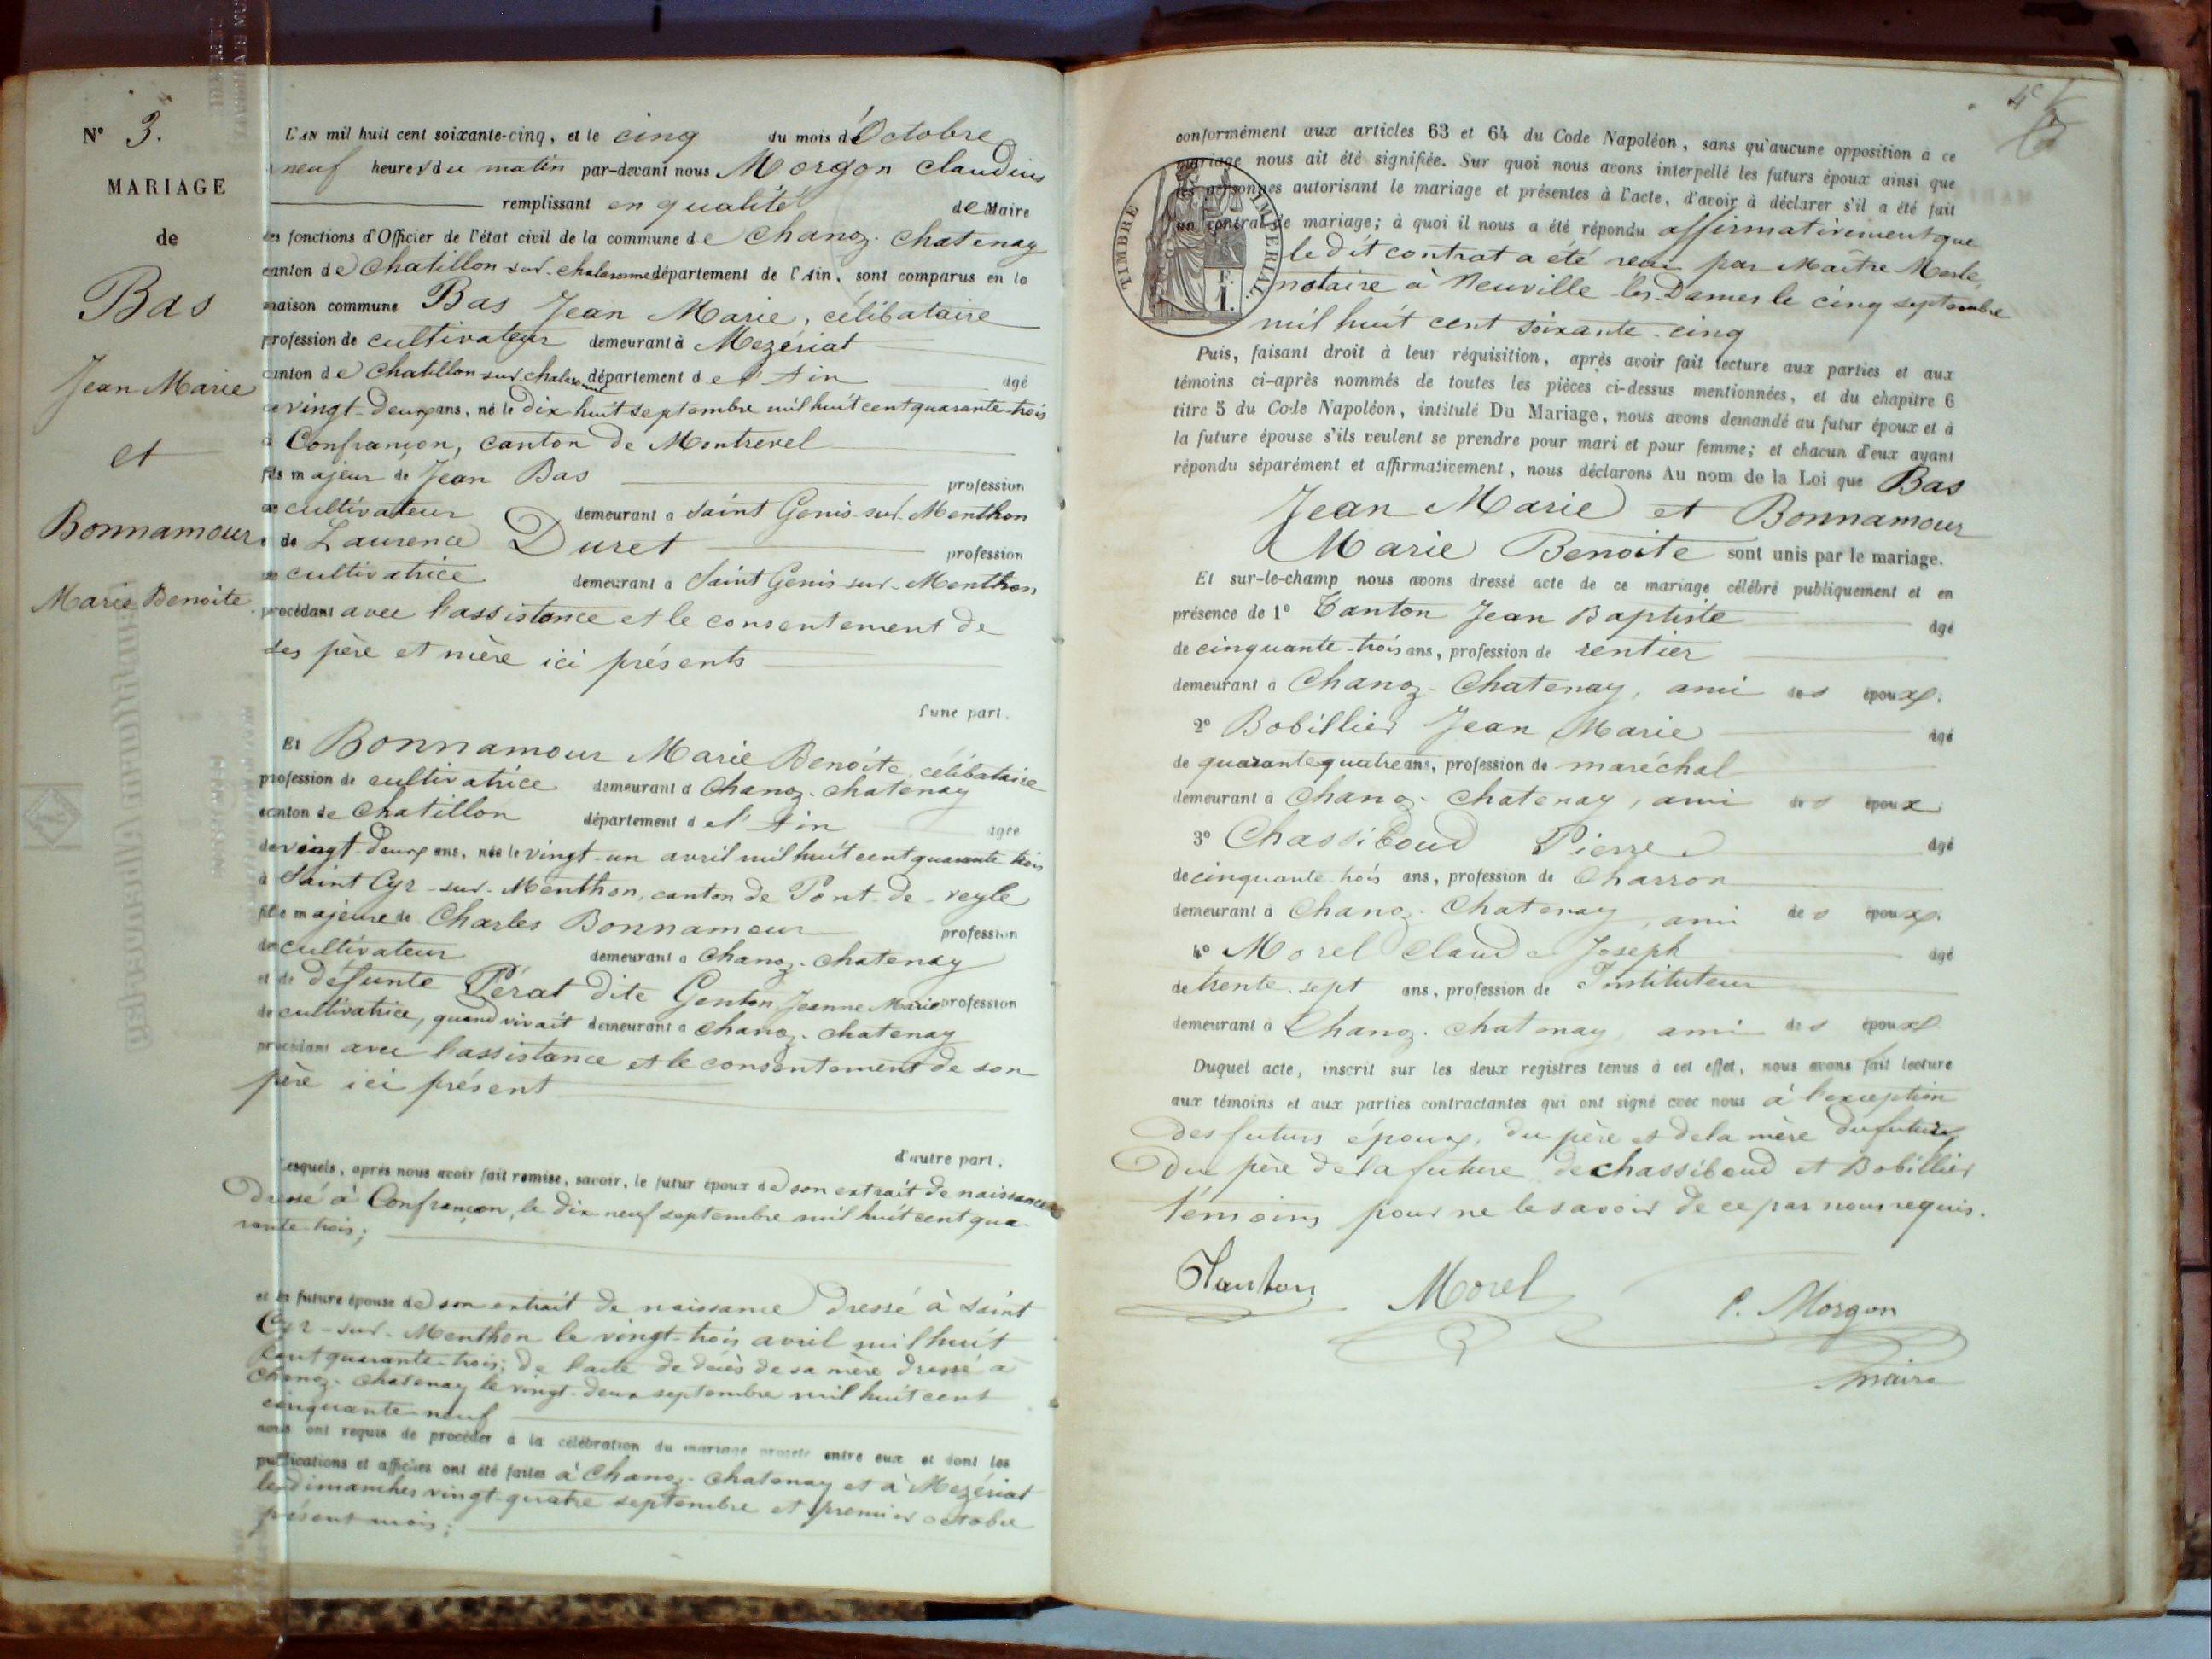 N° 3.
MARIAGE
de
Bas
Jean Marie
et
Bonnamour
Marie Benoite.
L'AN mil huit cent soixante-cinq, et le cinq du mois d'Octobre
à neuf heures du matin par-devant nous Morgon Claudius
remplissant en qualité de Maire
les fonctions d'Officier de l'état civil de la commune de Chanoz-Chatenay
canton de Chatillon-sur-Chalaronne département de l'Ain, sont comparus en la
maison commune Bas Jean Marie, célibataire
profession de cultivateur demeurant à Mezériat
canton de Chatillon-sur-Chalaronne département de l'Ain âgé
de vingt-deux ans, né le dix huit septembre mil huit cent quarante-trois
à Confrançon, canton de Montrevel
fils majeur de Jean Bas profession
de cultivateur demeurant à Saint Genis-sur-Menthon
et de Laurence Duret profession
de cultivatrice demeurant à Saint Genis-sur-Menthon
procédant avec l'assistance et le consentement de
ses père et mère ici présents
d'une part.
Et Bonnamour Marie Benoite, célibataire
profession de cultivatrice demeurant à Chanoz-Chatenay
canton de Chatillon département de l'Ain âgée
de vingt-deux ans, née le vingt-un avril mil huit cent quarante trois
à Saint Cyr-sur-Menthon, canton de Pont-de-veyle
fille majeure de Charles Bonnamour profession
de cultivateur demeurant à Chanoz-Chatenay
et de défunte Pérat dite Genton Jeanne Marie profession
de cultivatrice, quand vivait demeurant à Chanoz-Chatenay
procédant avec l'assistance et le consentement de son
père ici présent
d'autre part.
Lesquels, après nous avoir fait remise, savoir, le futur époux de son extrait de naissance
dressé à Confrançon, le dix neuf septembre mil huit cent qua-
rante-trois;
et la future épouse de son extrait de naissance dressé à Saint
Cyr-sur-Menthon le vingt-trois avril mil huit
cent quarante-trois; de l'acte de décès de sa mère dressé à
Chanoz-Chatenay le vingt-deux septembre mil huit cent
cinquante-neuf
nous ont requis de procéder à la célébration du mariage projeté entre eux et dont les
publications et affiches ont été faites à Chanoz-Chatenay et à Mezériat
les dimanches vingt-quatre septembre et premier octobre
présent mois;
conformément aux articles 63 et 64 du Code Napoléon, sans qu'aucune opposition à ce
mariage nous ait été signifiée. Sur quoi nous avons interpellé les futurs époux ainsi que
les personnes autorisant le mariage et présentes à l'acte, d'avoir à déclarer s'il a été fait
un contrat de mariage; à quoi il nous a été répondu affirmativement que
le dit contrat a été reçu par Maître Merle,
notaire à Neuville-les-Dames le cinq septembre
mil huit cent soixante-cinq
TIMBRE IMPERIAL
1 F.
Puis, faisant droit à leur réquisition, après avoir fait lecture aux parties et aux
témoins ci-après nommés de toutes les pièces ci-dessus mentionnées, et du chapitre 6
titre 5 du Code Napoléon, intitulé Du Mariage, nous avons demandé au futur époux et à
la future épouse s'ils veulent se prendre pour mari et pour femme; et chacun d'eux ayant
répondu séparément et affirmativement, nous déclarons Au nom de la Loi que Bas
Jean Marie et Bonnamour
Marie Benoite sont unis par le mariage.
Et sur-le-champ nous avons dressé acte de ce mariage célébré publiquement et en
présence de 1° Tanton Jean Baptiste âgé
de cinquante-trois ans, profession de rentier
demeurant à Chanoz-Chatenay, ami des époux.
2° Bobillier Jean Marie âgé
de quarante quatre ans, profession de maréchal
demeurant à Chanoz-Chatenay, ami des époux
3° Chassiboud Pierre âgé
de cinquante trois ans, profession de Charron
demeurant à Chanoz-Chatenay, ami des époux.
4° Morel Claude Joseph âgé
de trente-sept ans, profession de Instituteur
demeurant à Chanoz-Chatenay, ami des époux
Duquel acte, inscrit sur les deux registres tenus à cet effet, nous avons fait lecture
aux témoins et aux parties contractantes qui ont signé avec nous à l'exception
des futurs époux, du père et de la mère du futur,
du père de la future, de Chassiboud et Bobillier
témoins pour ne le savoir de ce par nous requis.
Tanton Morel C. Morgon
maire